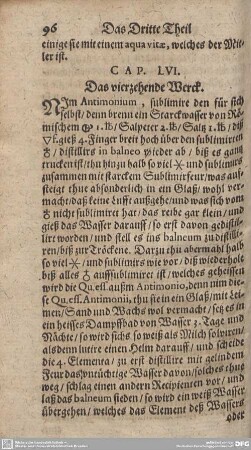 96 Das Dritte Theil
einige sie mit einem aqua vitæ, welches der Mit-
ler ist.
CAP. LVI.
Das vierzehende Werck.
NIm Antimonium, sublimire den für sich
selbst/ denn brenn ein Starckwasser von Rö-
mischem 1. lb/ Salpeter 2. lb/ Saltz 1. lb/ diß
gieß 4. Finger breit hoch über den sublimirten
/ distillirs in balneo wider ab/ biß es gantz
trucken ist/ thu hinzu halb so viel und sublimirs
zusammen mit starckem Sublimirfeur/ was auf-
steigt thue absonderlich in ein Glaß/ wohl ver-
macht/ daß keine Lufft außgehe/ und was sich vom
nicht sublimiret hat/ das reibe gar klein/ und
gieß das Wasser darauf/ so erst davon gedistil-
lirt worden/ und stell es ins balneum zu distilli-
ren/ biß zur Tröckene. Darzu thu abermahl halb
so viel und sublimirs wie vor/ diß wiederhole
biß alles auffsublimiret ist/ welches geheissen
wird die Qu. ess. auß'm Antimonio, denn nim die-
se Qu. ess. Antimonii, thu sie in ein Glaß/ mit Lei-
men/ Sand und Wachs wol vermacht/ setz es in
ein heisses Dampffbad von Wasser 3. Tage und
Nächte/ so wird sichs so weiß als Milch solviren/
alsdenn lutire einen Helm darauff/ und scheide
die 4. Elementa/ zu erst distillire mit gelindem
Feur das unrüchtige Wasser davon/ solches thue
weg/ schlag einen andern Recipienten vor/ und
laß das balneum sieden/ so wird ein weiß Wasser
übergehen/ welches das Element deß Wassers
oder